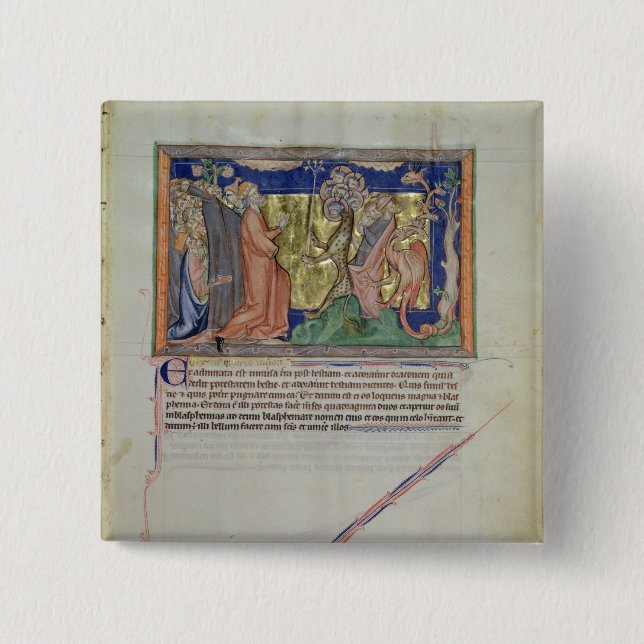 Et admirata est uniusa t̄ra post bestiam. et adoraūnt draconem quia
dedit potestatem bestie. et adoraūnt bestiam dicentes. Quis simil' bes
tie ⁊ quis pot'it pugnare cum ea. Et datum est ei os loquens magna ⁊ blas
phemia. Et data ē illi potestas fac'e m̄ses quadraginta duos et aperuit os suū
in blasphemias ad deum blasphemare nomen eius et eos qui in celo h̄itant. et
datum ē illi bellum facere cum sc̄is et uinc'e illos.